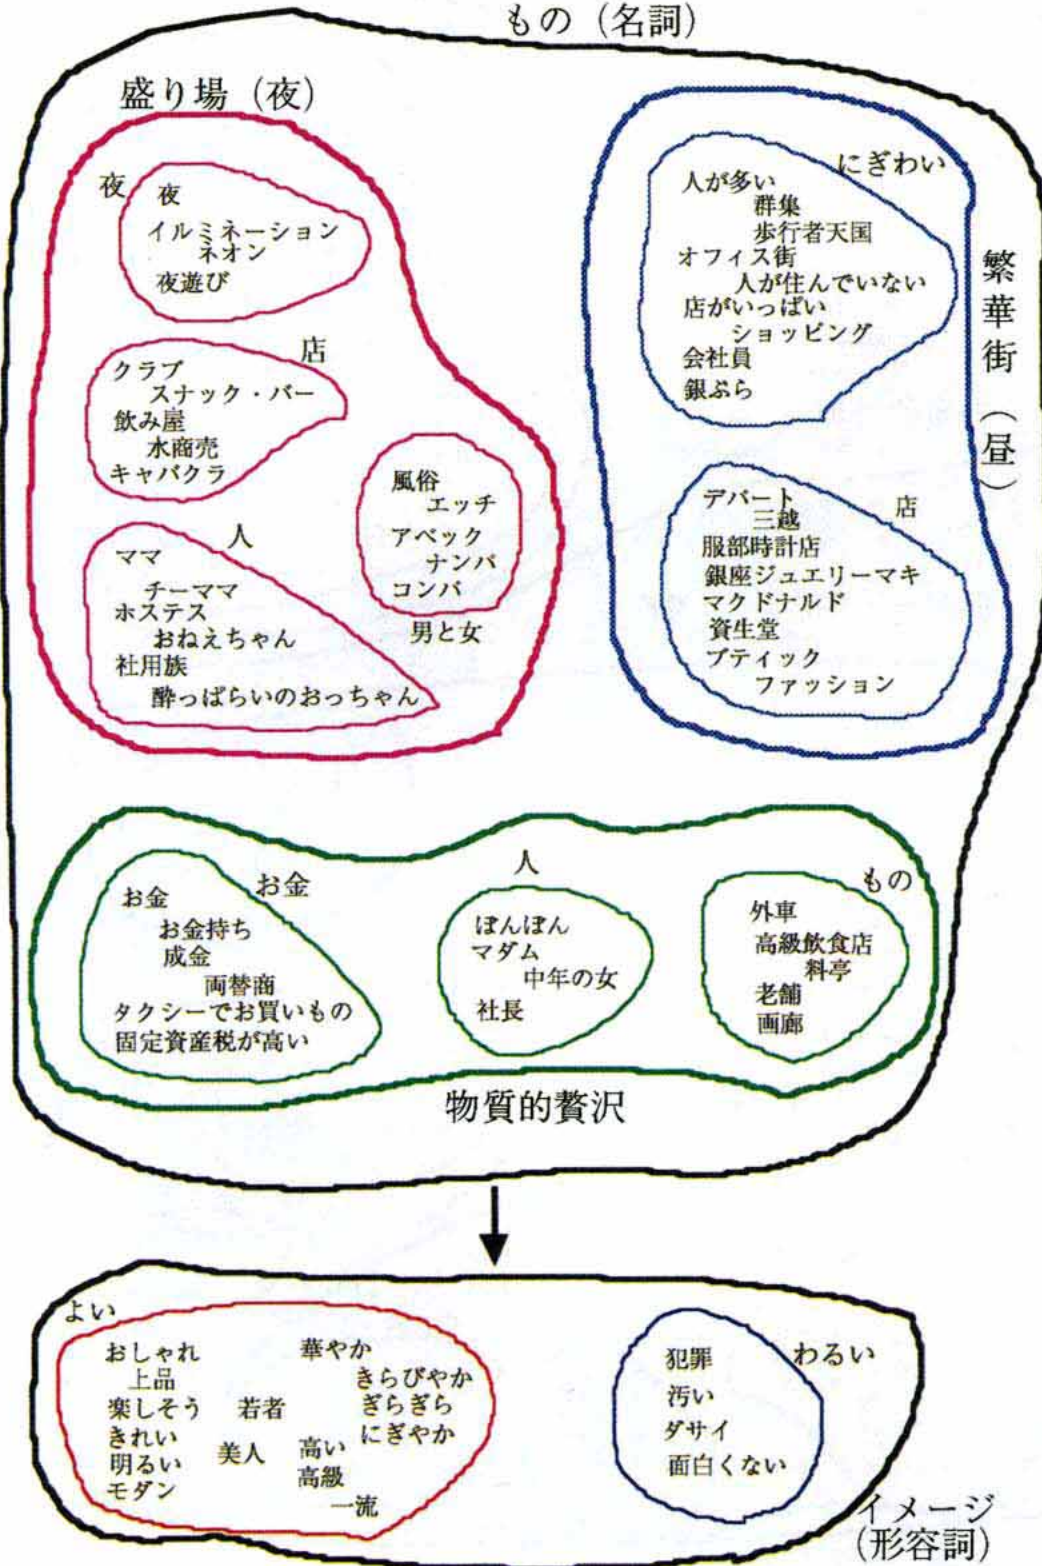 もの（名詞）
盛り場（夜）
夜
夜
イルミネーション
ネオン
夜遊び
店
クラブ
スナック・バー
飲み屋
水商売
キャバクラ
人
ママ
チーママ
ホステス
おねえちゃん
社用族
酔っぱらいのおっちゃん
風俗
エッチ
アベック
ナンパ
コンパ
男と女
繁華街（昼）
にぎわい
人が多い
群集
歩行者天国
オフィス街
人が住んでいない
店がいっぱい
ショッピング
会社員
銀ぶら
店
デパート
三越
服部時計店
銀座ジュエリーマキ
マクドナルド
資生堂
ブティック
ファッション
お金
お金
お金持ち
成金
両替商
タクシーでお買いもの
固定資産税が高い
人
ぼんぼん
マダム
中年の女
社長
もの
外車
高級飲食店
料亭
老舗
画廊
物質的贅沢
よい
おしゃれ
上品
楽しそう
きれい
明るい
モダン
若者
美人
華やか
きらびやか
ぎらぎら
にぎやか
高い
高級
一流
わるい
犯罪
汚い
ダサイ
面白くない
イメージ
（形容詞）